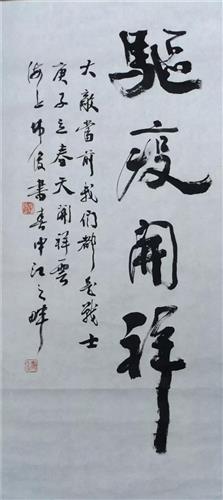 驅疫開祥
大敵當前我們都是戰士
庚子立春天開祥雲
海上
書春申江之畔